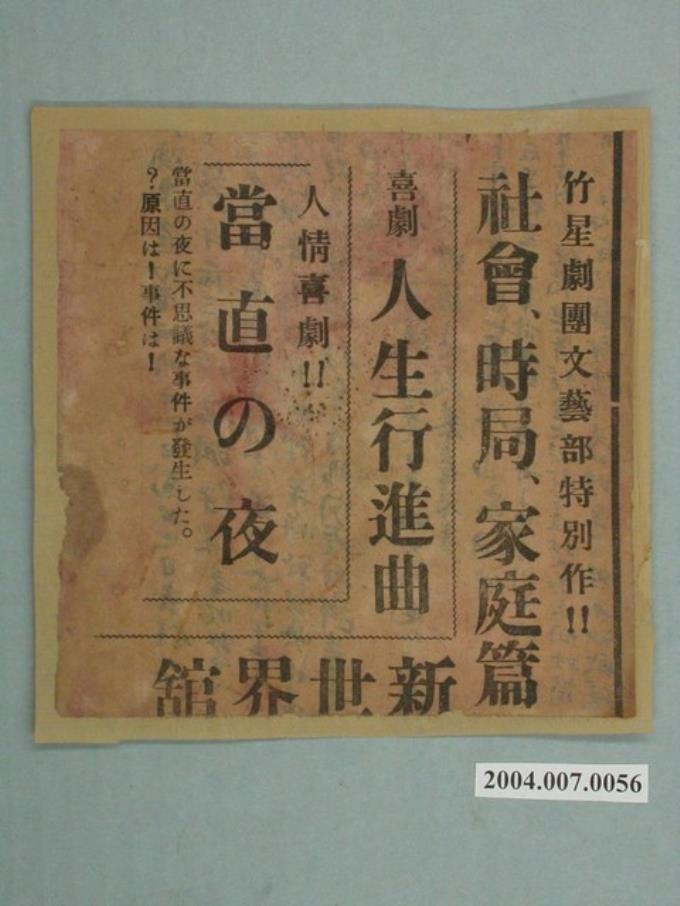 竹星劇團文藝部特別作!!
社會、時局、家庭篇
喜劇 人生行進曲
人情喜劇!!
當直の夜
當直の夜に不思議な事件が發生した。
?原因は!事件は!
新世界舘
2004.007.0056